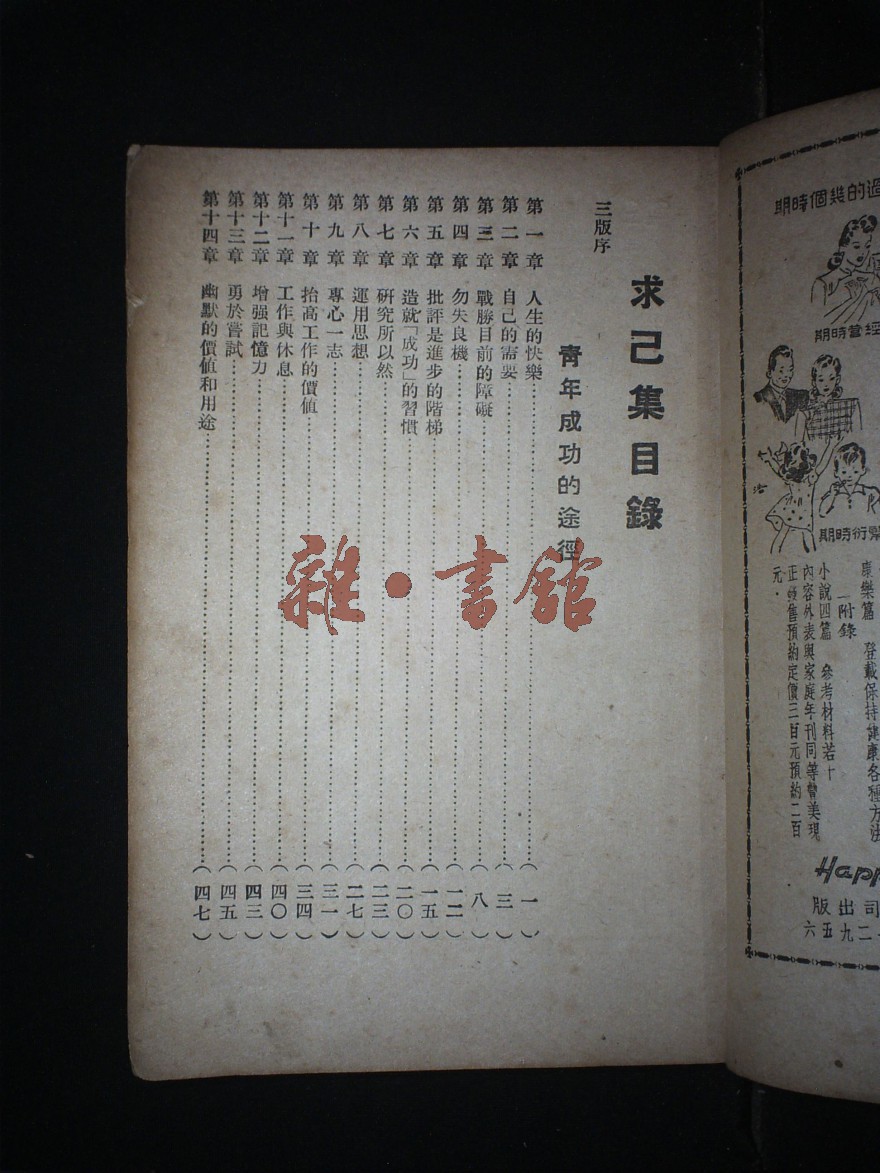 求己集目錄
三版序
青年成功的途徑
第一章 人生的快樂……(一)
第二章 自己的需要……(三)
第三章 戰勝目前的障礙……(八)
第四章 勿失良機……(一二)
第五章 批評是進步的階梯……(一五)
第六章 造就「成功」的習慣……(二〇)
第七章 研究所以然……(二三)
第八章 運用思想……(二七)
第九章 專心一志……(三一)
第十章 抬高工作的價值……(三四)
第十一章 工作與休息……(四〇)
第十二章 增强記憶力……(四三)
第十三章 勇於嘗試……(四五)
第十四章 幽默的價值和用途……(四七)
雜·書館
期時個幾的過
期時當經
期時衍繁
康樂篇 登載保持健康各種方法
附錄
小說四篇 參考材料若干
內容外表與家庭年刊同等豐美現
正發售預約定價三百元預約二百
元.
Happ
版出司
六五九二